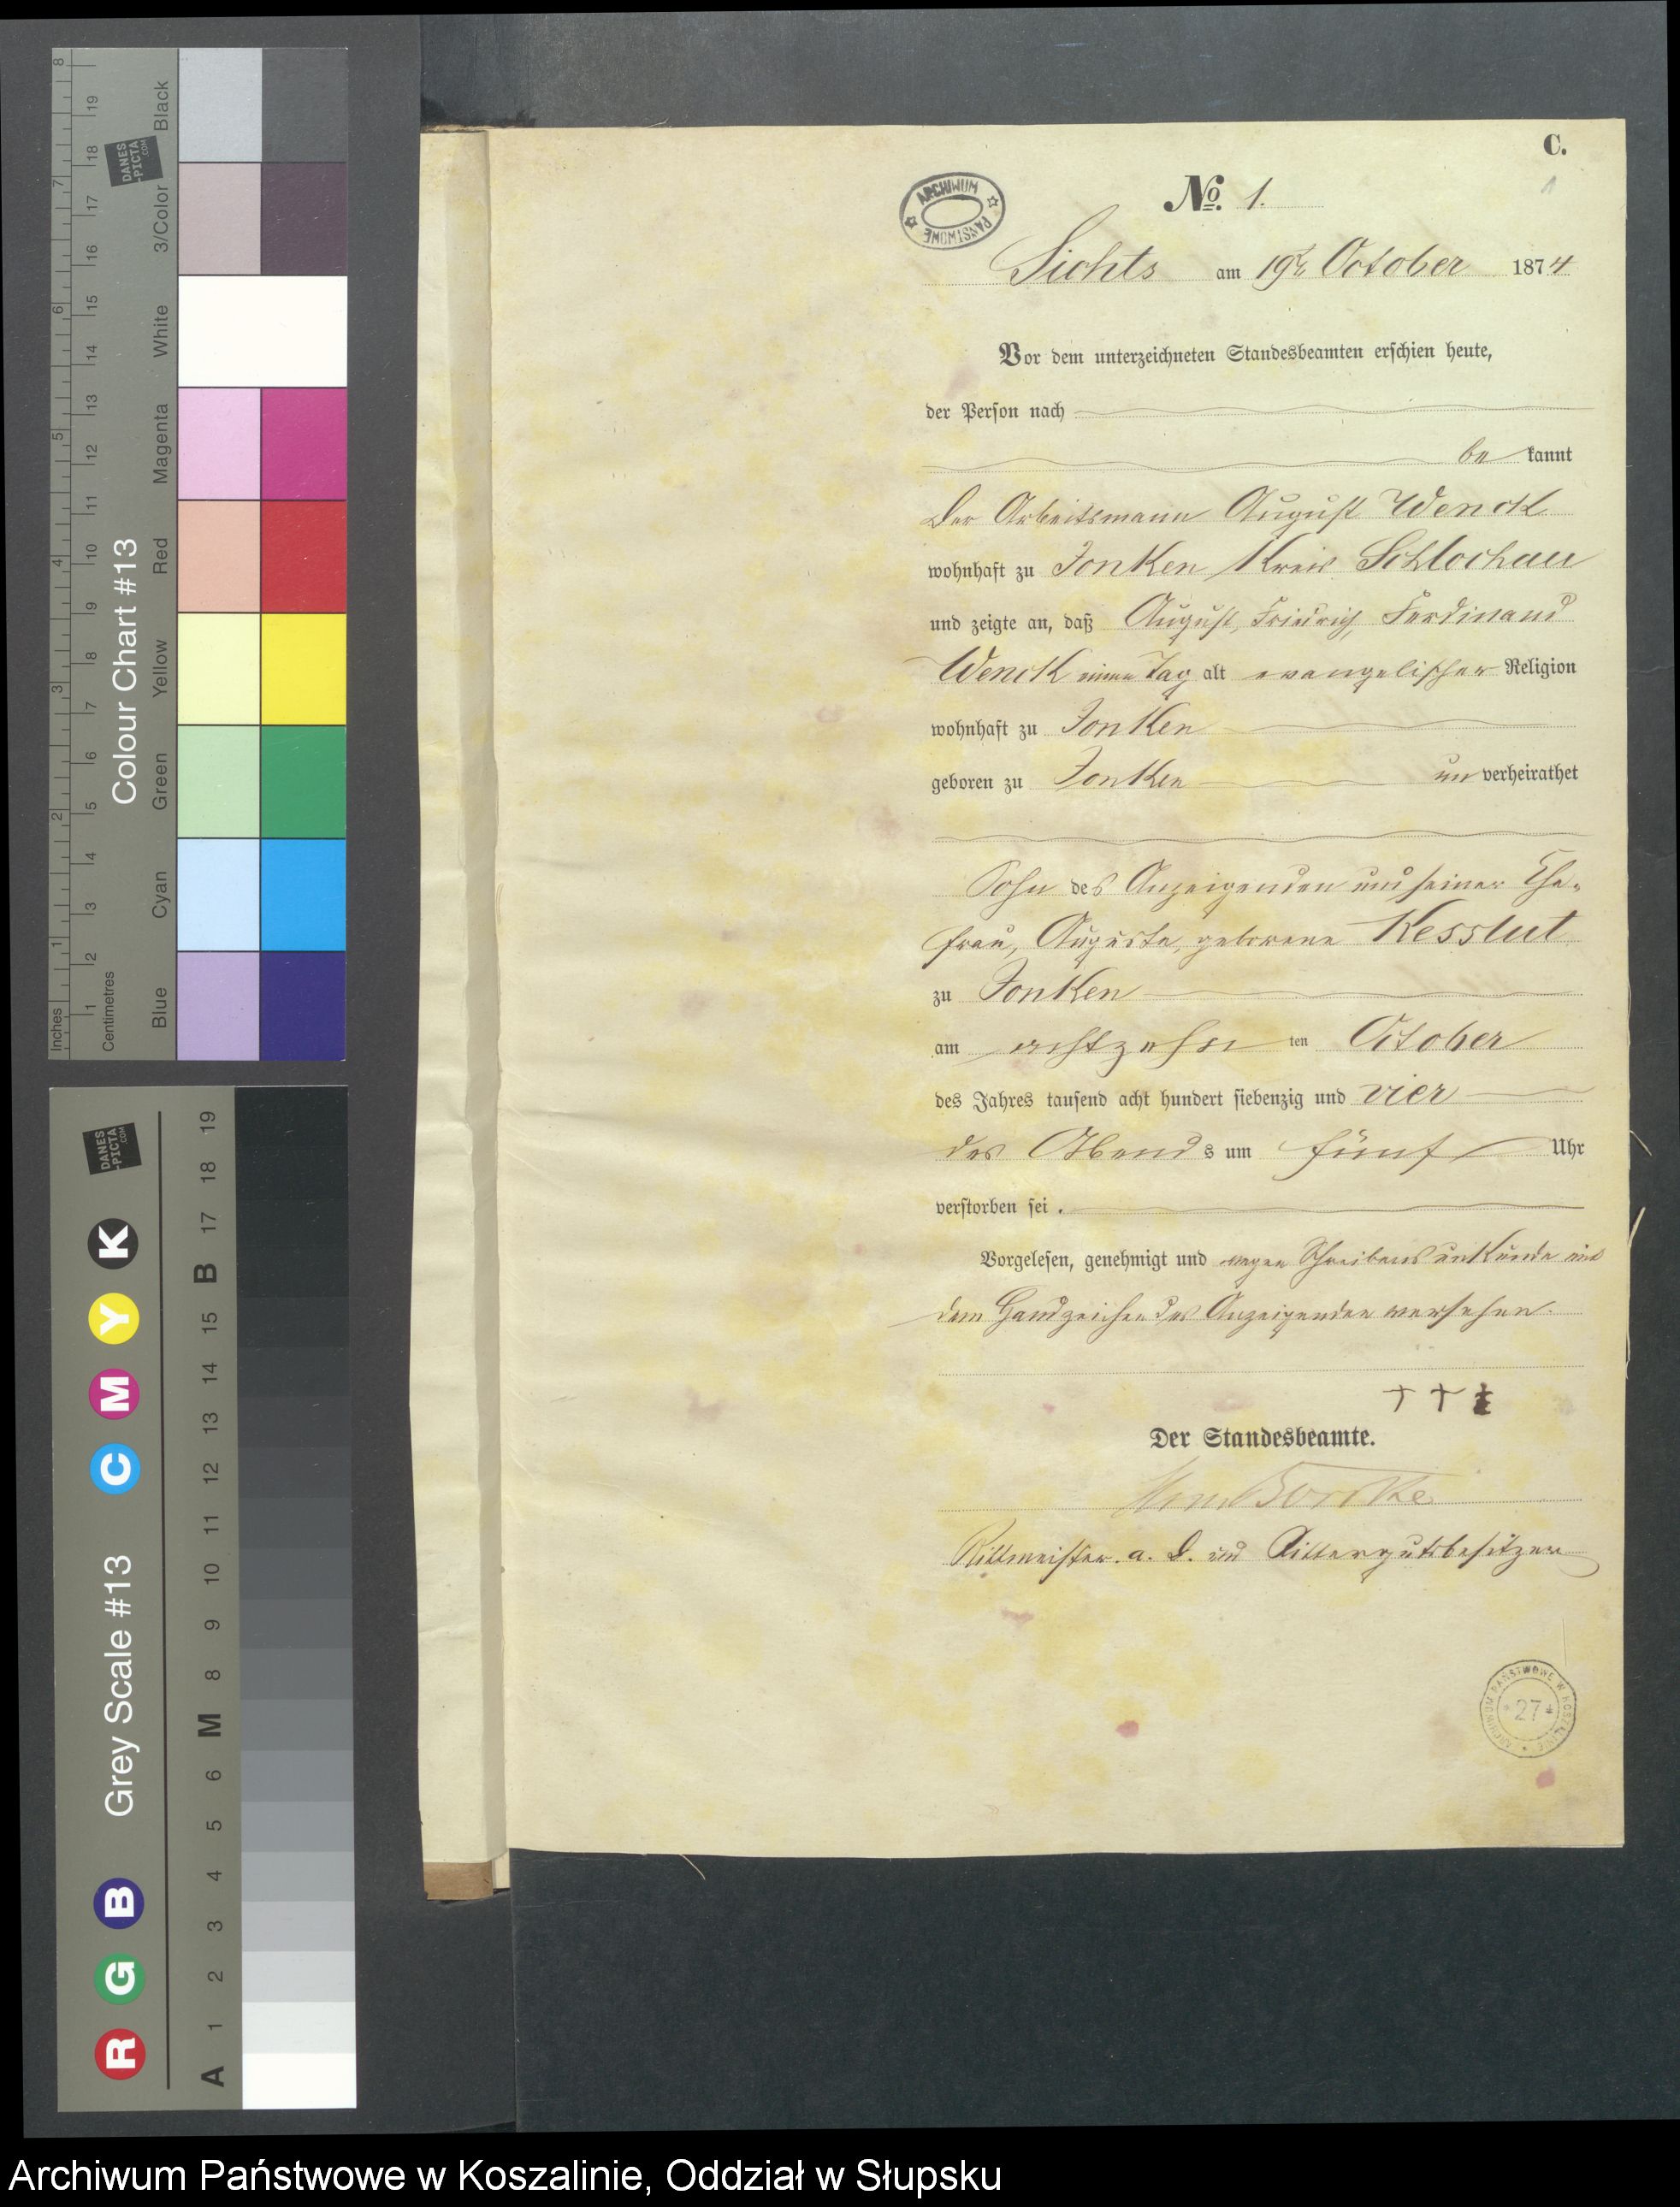 Inches 1 2 3 4 5 6 7 8
Centimetres 1 2 3 4 5 6 7 8 9 10 11 12 13 14 15 16 17 18 19
Colour Chart #13
DANES
-PICTA
.COM
Blue Cyan Green Yellow Red Magenta White 3/Color Black
Grey Scale #13
DANES
-PICTA
.COM
R G B C M Y K
A 1 2 3 4 5 6 M 8 9 10 11 12 13 14 15 B 17 18 19
C.
1
ARCHIWUM PAŃSTWOWE
No. 1.
Sichts am 19ten October 1874
Vor dem unterzeichneten Standesbeamten erschien heute,
der Person nach
be kannt
Der Arbeitsmann August Wenck
wohnhaft zu Jonken Kreis Schlochau
und zeigte an, daß August, Friedrich, Ferdinand
Wenck einen Tag alt evangelischer Religion
wohnhaft zu Jonken
geboren zu Jonken un verheirathet
Sohn des Anzeigenden und seiner Ehe-
frau, Auguste, geborene Kesslut
zu Jonken
am achtzehn ten October
des Jahres tausend acht hundert siebenzig und vier
des Abends um fünf Uhr
verstorben sei.
Vorgelesen, genehmigt und wegen Schreibens unkunde mit
dem Handzeichen des Anzeigenden versehen.
† † †
Der Standesbeamte.
Rittmeister a. D. und Rittergutsbesitzer
ARCHIWUM PAŃSTWOWE W KOSZALINIE
* 27 *
Archiwum Państwowe w Koszalinie, Oddział w Słupsku